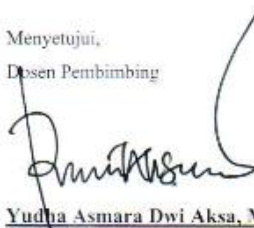 Menyetujui,
Dosen Pembimbing
Yudha Asmara Dwi Aksa, M